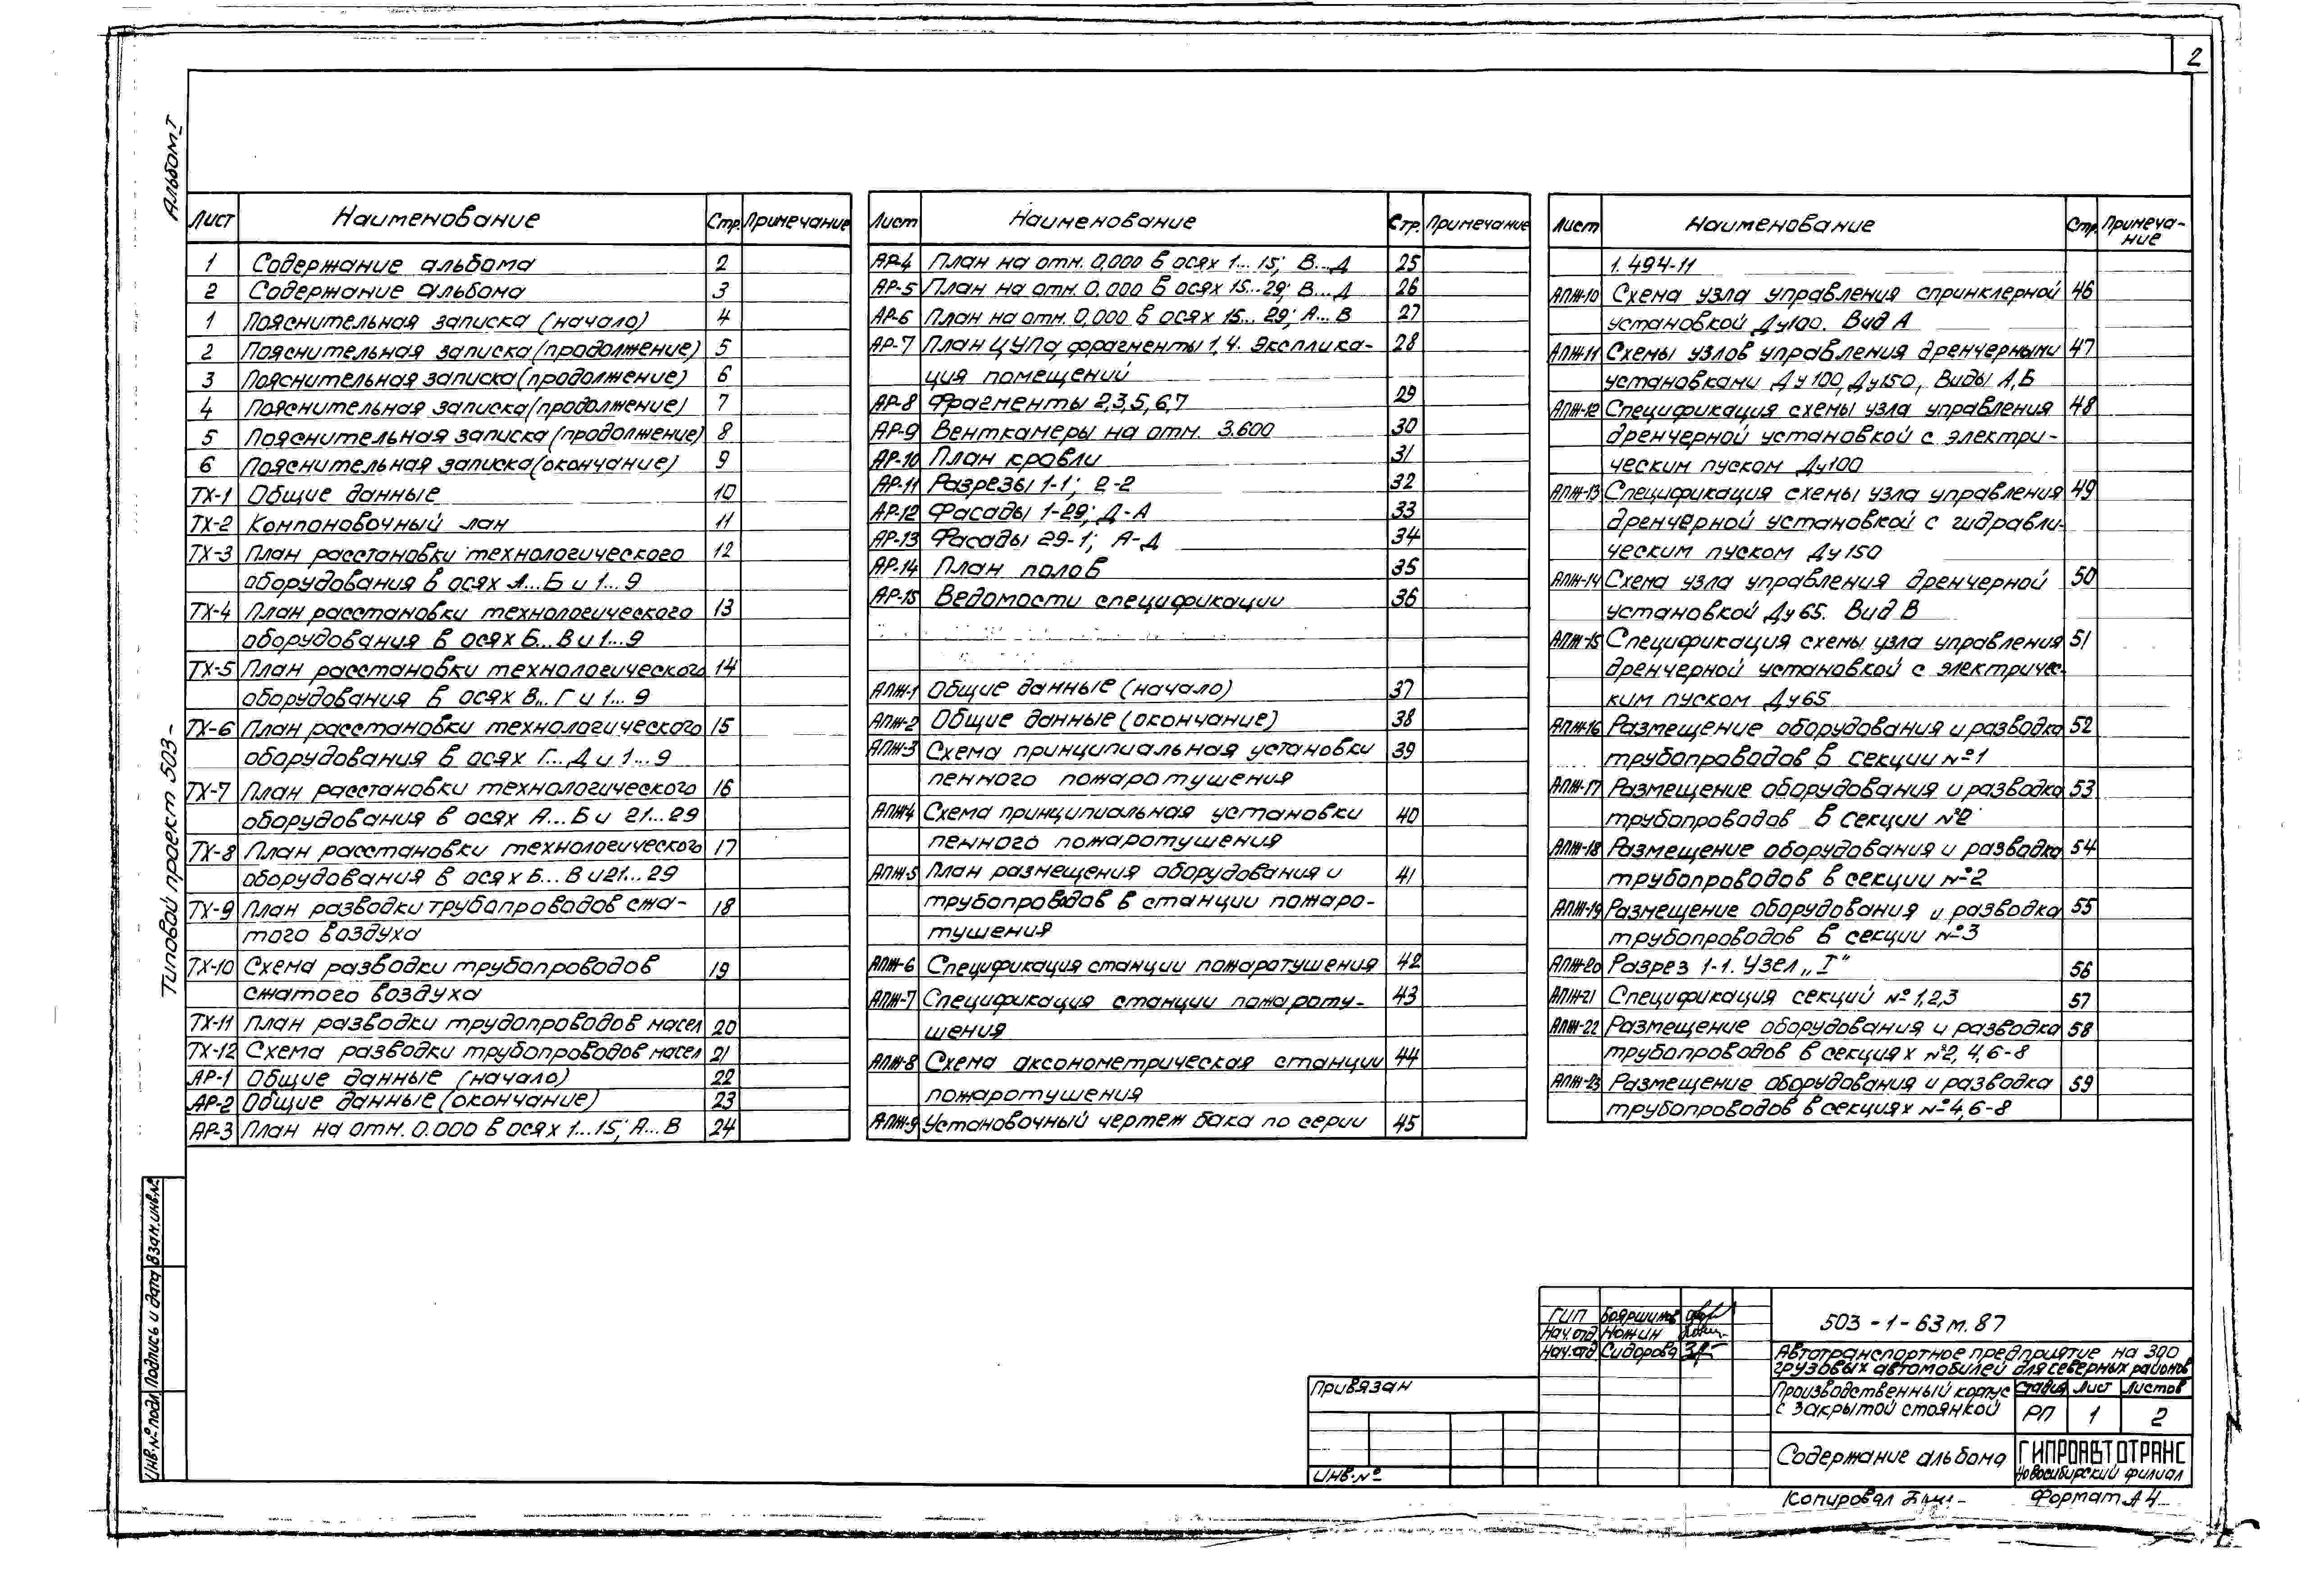 2
Альбом I
Типовой проект 503-
Лист Наименование Стр. Примечание
1 Содержание альбома 2
2 Содержание альбома 3
1 Пояснительная записка (начало) 4
2 Пояснительная записка (продолжение) 5
3 Пояснительная записка (продолжение) 6
4 Пояснительная записка (продолжение) 7
5 Пояснительная записка (продолжение) 8
6 Пояснительная записка (окончание) 9
ТХ-1 Общие данные 10
ТХ-2 Компоновочный лан 11
ТХ-3 План расстановки технологического 12
оборудования в осях А...Б и 1...9
ТХ-4 План расстановки технологического 13
оборудования в осях Б...В и 1...9
ТХ-5 План расстановки технологического 14
оборудования в осях В...Г и 1...9
ТХ-6 План расстановки технологического 15
оборудования в осях Г...Д и 1...9
ТХ-7 План расстановки технологического 16
оборудования в осях А...Б и 21...29
ТХ-8 План расстановки технологического 17
оборудования в осях Б...В и 21...29
ТХ-9 План разводки трубопроводов сжа- 18
того воздуха
ТХ-10 Схема разводки трубопроводов 19
сжатого воздуха
ТХ-11 План разводки трудопроводов масел 20
ТХ-12 Схема разводки трубопроводов масел 21
АР-1 Общие данные (начало) 22
АР-2 Общие данные (окончание) 23
АР-3 План на отм. 0.000 в осях 1...15; А...В 24
Лист Наименование Стр. Примечание
АР-4 План на отм. 0,000 в осях 1...15; В...Д 25
АР-5 План на отм. 0,000 в осях 15...29; В...Д 26
АР-6 План на отм. 0,000 в осях 15...29; А...В 27
АР-7 План ЦУПа, фрагменты 1,4. Эксплика- 28
ция помещений
АР-8 Фрагменты 2,3,5,6,7 29
АР-9 Венткамеры на отм. 3.600 30
АР-10 План кровли 31
АР-11 Разрезы 1-1; 2-2 32
АР-12 Фасады 1-29; Д-А 33
АР-13 Фасады 29-1; А-Д 34
АР-14 План полов 35
АР-15 Ведомости спецификации 36
АПЖ-1 Общие данные (начало) 37
АПЖ-2 Общие данные (окончание) 38
АПЖ-3 Схема принципиальная установки 39
пенного пожаротушения
АПЖ4 Схема принципиальная установки 40
пенного пожаротушения
АПЖ-5 План размещения оборудования и 41
трубопроводов в станции пожаро-
тушения
АПЖ-6 Спецификация станции пожаротушения 42
АПЖ-7 Спецификация станции пожароту- 43
шения
АПЖ-8 Схема аксонометрическая станции 44
пожаротушения
АПЖ-9 Установочный чертеж бака по серии 45
Лист Наименование Стр. Примеча-
ние
1.494-11
АПЖ-10 Схема узла управления спринклерной 46
установкой Ду100. Вид А
АПЖ-11 Схемы узлов управления дренчерными 47
установками Ду100, Ду150, Виды А,Б
АПЖ-12 Спецификация схемы узла управления 48
дренчерной установкой с электри-
ческим пуском Ду100
АПЖ-13 Спецификация схемы узла управления 49
дренчерной установкой с гидравли-
ческим пуском Ду150
АПЖ-14 Схема узла управления дренчерной 50
установкой Ду65. Вид В
АПЖ-15 Спецификация схемы узла управления 51
дренчерной установкой с электричес-
ким пуском Ду65
АПЖ-16 Размещение оборудования и разводка 52
трубопроводов в секции №1
АПЖ-17 Размещение оборудования и разводка 53
трубопроводов в секции №2
АПЖ-18 Размещение оборудования и разводка 54
трубопроводов в секции №2
АПЖ-19 Размещение оборудования и разводка 55
трубопроводов в секции №3
АПЖ-20 Разрез 1-1. Узел „I“ 56
АПЖ-21 Спецификация секций №1,2,3 57
АПЖ-22 Размещение оборудования и разводка 58
трубопроводов в секциях №2, 4, 6-8
АПЖ-23 Размещение оборудования и разводка 59
трубопроводов в секциях №4, 6-8
Инв.№ подл. Подпись и дата Взам.инв.№
ГИП Бояршинов
Нач.отд. Ножин
Нач.отд. Сидорова
503-1-63м.87
Автотранспортное предприятие на 300
грузовых автомобилей для северных районов
Производственный корпус
с закрытой стоянкой
Стадия Лист Листов
РП 1 2
Привязан
Инв.№
Содержание альбома
ГИПРОАВТОТРАНС
Новосибирский филиал
Копировал
Формат А4